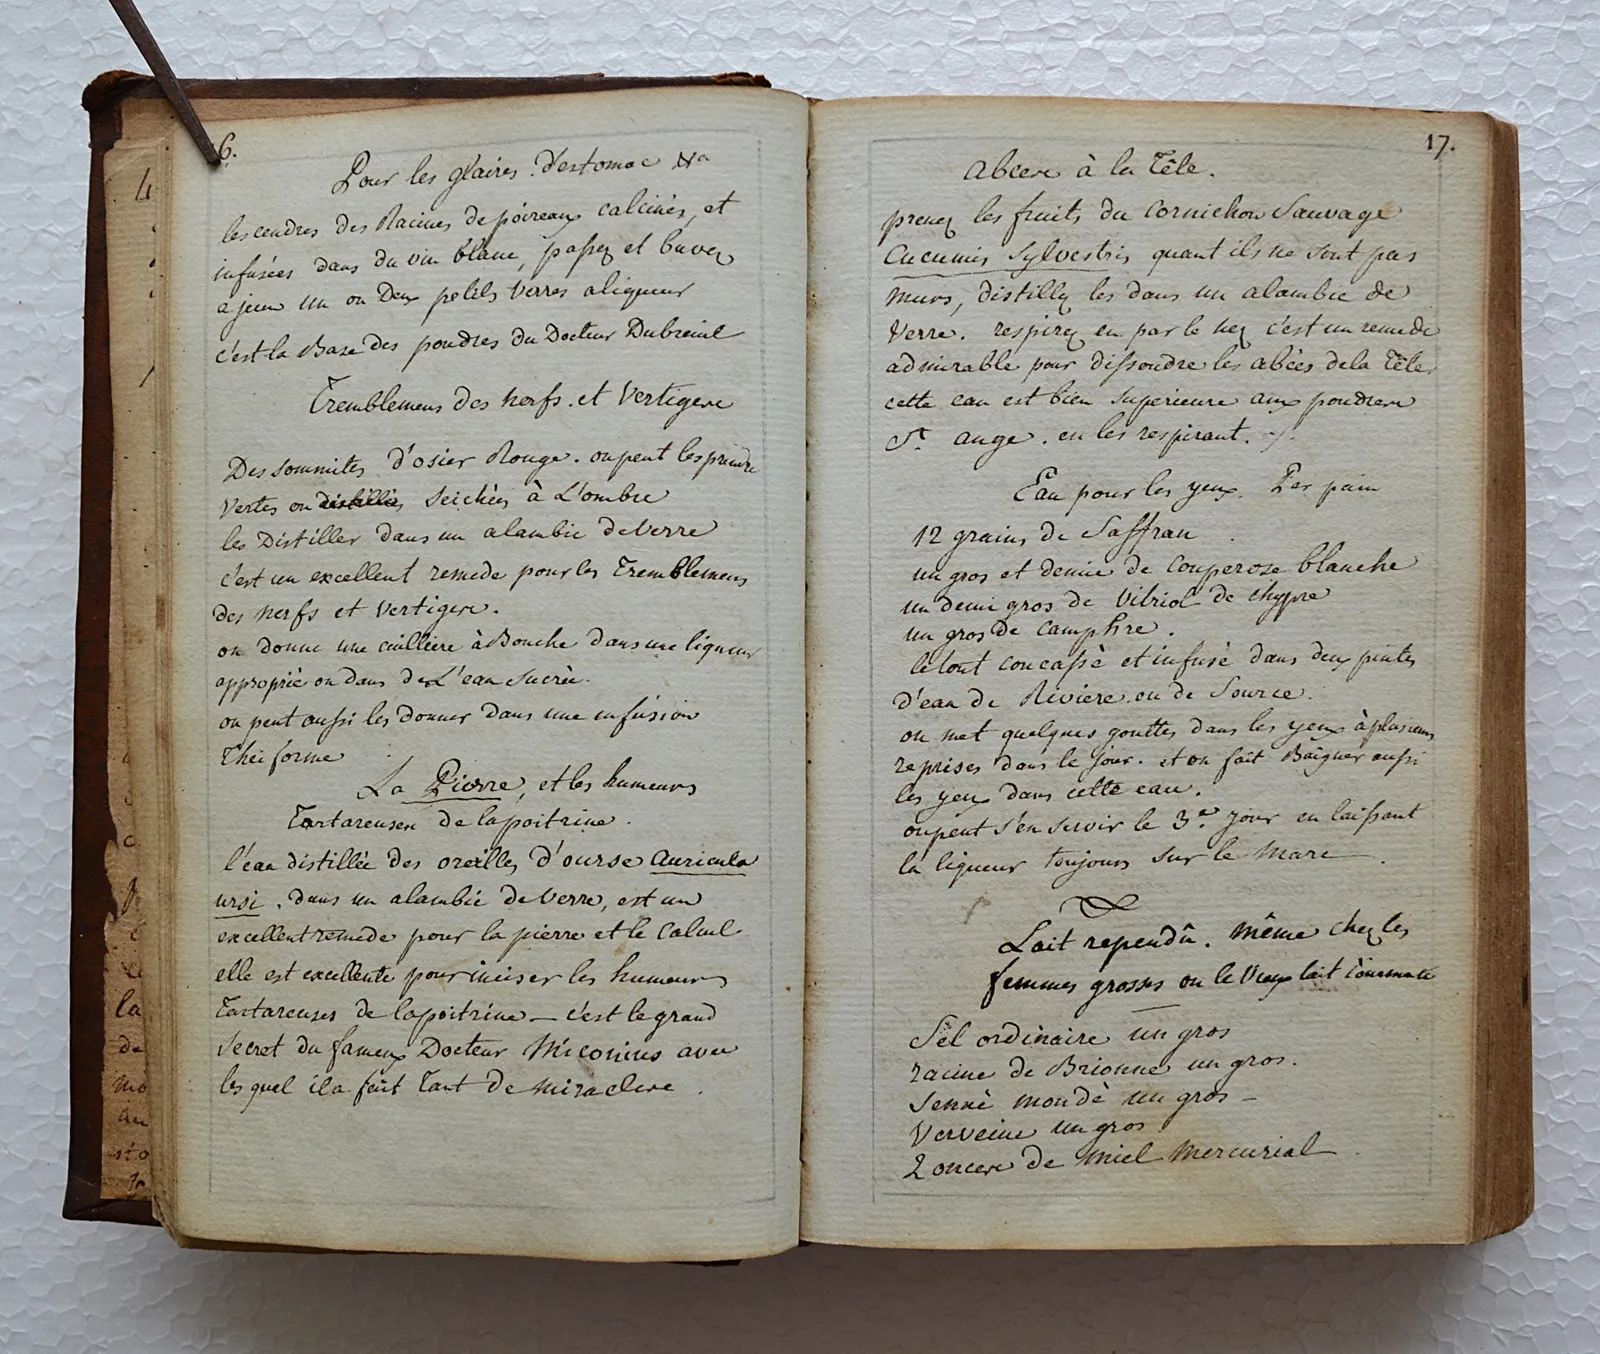 6.
Pour les glaires d'estomac Na
les cendres des Racines de poireaux calcinés, et
infusées dans du vin blanc, passez et buvez
a jeun un ou Deux petits verres aliqueur
c'est la Baze des poudres du Docteur Dubreuil
Tremblemens des nerfs. et Vertigere
Des sommités d'osier Rouge. on peut les prendre
Vertes ou distillies seichées à L'ombre
les Distiller dans un alambic de Verre
c'est un excellent remede pour les Tremblemens
des nerfs et vertigere.
on donne une cuilliere à Bouche dans une liqueur
approprié ou dans de L'eau sucrée.
on peut aussi les donner dans une infusion
Théiforme
La Pierre, et les humeurs
Tartareuses de la poitrine.
l'eau distillée des oreilles d'ourse auricula
ursi. dans un alambic de Verre, est un
excellent remede pour la pierre et le calcul
elle est excellente pour inciser les humeurs
Tartareuses de la poitrine — c'est le grand
secret du fameux Docteur Miconius avec
les quel il a fait Tant de miraclere.
17.
Abcere à la Tête.
prenez les fruits du Cornichon Sauvage
Cucumis Sylvestris quant ils ne sont pas
murs, distillez les dans un alambic de
Verre. respirez en par le nez c'est un remede
admirable pour dissoudre les abcès de la Tête
cette eau est bien superieure aux poudrere
St. ange. en les respirant.
Eau pour les yeux. Per pain
12 grains de Saffran
un gros et demie de Couperoze blanche
un demi gros de Vitriol de chypre
un gros de Camphre.
le tout concassé et infusé dans deux pintes
d'eau de Riviere ou de Source.
on met quelques gouttes dans les yeux à plusieurs
reprises dans le jour. et on fait Baigner aussi
les yeux dans cette eau.
on peut s'en servir le 3.e jour en laissant
la liqueur toujours sur le Marc.
Lait rependû. même chez les
femmes grosses ou le Vieux lait
Sel ordinaire un gros
racine de Brionne un gros.
Senné mondé un gros —
Verveine un gros
2 oncere de Miel Mercurial
la
de
mo
au